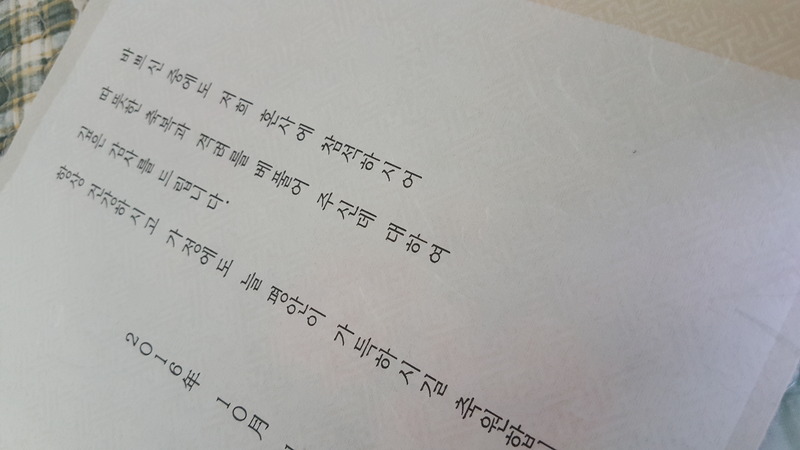 바쁘신 중에도 저희 혼사에 참석하시어
따뜻한 축복과 격려를 베풀어 주신데 대하여
깊은 감사를 드립니다.
항상 건강하시고 가정에도 늘 평안이 가득하시길 축원합니
2016年 10月